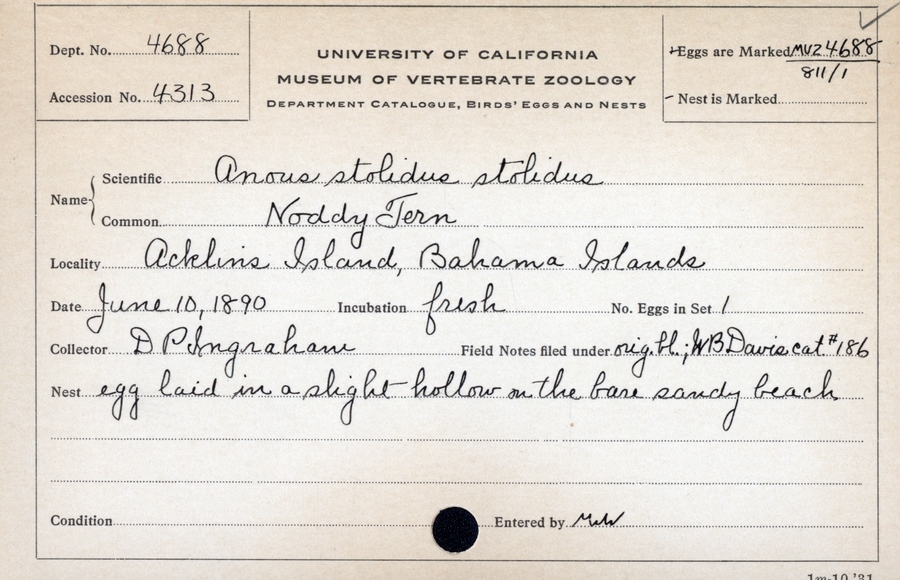 Dept. No. 4688
Accession No. 4313
UNIVERSITY OF CALIFORNIA
MUSEUM OF VERTEBRATE ZOOLOGY
DEPARTMENT CATALOGUE, BIRDS' EGGS AND NESTS
Eggs are Marked MVZ 4688
811/1
Nest is Marked
Name
Scientific Anous stolidus stolidus
Common Noddy Tern
Locality Acklins Island, Bahama Islands
Date June 10, 1890 Incubation fresh No. Eggs in Set 1
Collector D P Ingraham Field Notes filed under orig. bl.; WB Davis cat #186
Nest egg laid in a slight hollow on the bare sandy beach
Condition Entered by
1m-10,'31